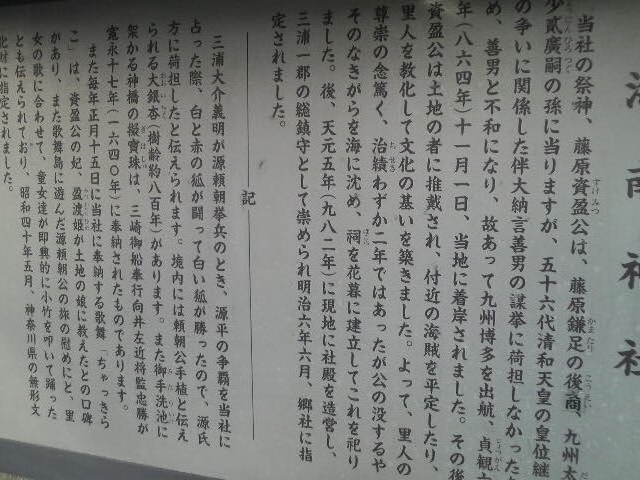 海南神社
当社の祭神、藤原資盈公は、藤原鎌足の後裔、九州太
少貳廣嗣の孫に当りますが、五十六代清和天皇の皇位継
の争いに関係した伴大納言善男の謀挙に荷担しなかった
め、善男と不和になり、故あって九州博多を出航、貞観
年(八六四年)十一月一日、当地に着岸されました。その後
資盈公は土地の者に推戴され、付近の海賊を平定したり、
里人を教化して文化の基いを築きました。よって、里人の
尊崇の念篤く、治績わずか二年ではあったが公の没するや
そのなきがらを海に沈め、祠を花暮に建立してこれを祀り
ました。後、天元五年(九八二年)に現地に社殿を造営し、
三浦一郡の総鎮守として崇められ明治六年六月、郷社に指
定されました。
記
三浦大介義明が源頼朝挙兵のとき、源平の争覇を当社に
占った際、白と赤の狐が闘って白い狐が勝ったので、源氏
方に荷担したと伝えられます。境内には頼朝公手植と伝え
られる大銀杏(樹齢約八百年)があります。また御手洗池に
架かる神橋の擬寶珠は、三崎御船奉行向井左近将監忠勝が
寛永十七年(一六四〇年)に奉納されたものであります。
また毎年正月十五日に当社に奉納する歌舞「ちゃっきら
こ」は、資盈公の妃、盈渡姫が土地の娘に教えたとの口碑
があり、また歌舞島に遊んだ源頼朝公の旅の慰めにと、里
女の歌に合わせて、童女達が即興的に小竹を叩いて踊った
とも伝えられており、昭和四十年五月、神奈川県の無形文
化財に指定されました。